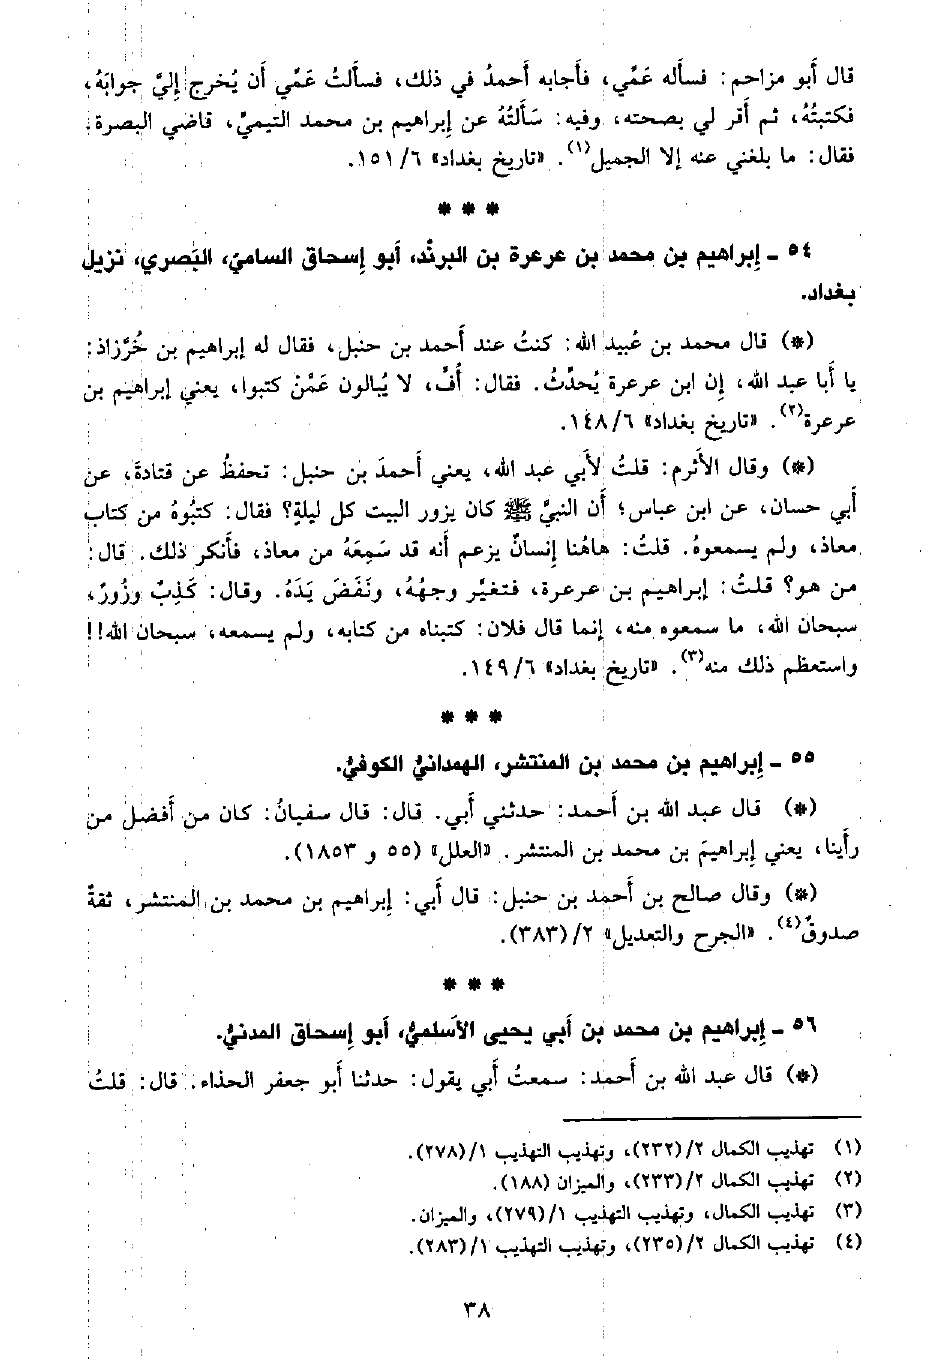 قال أبو مزاحم: فسأله عَمِّي، فأجابه أحمدُ في ذلك، فسألتُ عَمِّي أن يُخرج إليَّ جوابَهُ،
فكتبتُهُ، ثم أقر لي بصحته، وفيه: سَأَلتُهُ عن إبراهيم بن محمد التيميِّ، قاضي البصرة:
فقال: ما بلغني عنه إلا الجميل(١). «تاريخ بغداد» ٦/ ١٥١.
* * *
٥٤ ـ إبراهيم بن محمد بن عرعرة بن البرنْد، أبو إسحاق الساميّ، البَصري، نزيل
بغداد.
(*) قال محمد بن عُبيد الله: كنتُ عند أحمد بن حنبل، فقال له إبراهيم بن خُرَّزاذ:
يا أبا عبد الله، إن ابن عرعرة يُحدِّثُ. فقال: أُفٍّ، لا يُبالون عَمَّنْ كتبوا، يعني إبراهيم بن
عرعرة(٢). «تاريخ بغداد» ٦/ ١٤٨.
(*) وقال الأثرم: قلتُ لأبي عبد الله، يعني أحمدَ بن حنبل: تحفظُ عن قتادةَ، عن
أبي حسان، عن ابن عباس؛ أن النبيَّ ﷺ كان يزور البيت كل ليلةٍ؟ فقال: كتبُوهُ من كتاب
معاذ، ولم يسمعوهُ. قلتُ: هاهُنا إنسانٌ يزعم أنه قد سَمِعَهُ من معاذ، فأنكر ذلك. قال:
من هو؟ قلتُ: إبراهيم بن عرعرة، فتغيَّر وجهُهُ، ونَفَضَ يَدَهُ. وقال: كَذِبٌ وزُورٌ،
سبحان الله، ما سمعوه منه، إنما قال فلان: كتبناه من كتابه، ولم يسمعه، سبحان الله!!
واستعظم ذلك منه(٣). «تاريخ بغداد» ٦/ ١٤٩.
* * *
٥٥ ـ إبراهيم بن محمد بن المنتشر، الهمدانيُّ الكوفيُّ.
(*) قال عبد الله بن أحمد: حدثني أبي. قال: قال سفيانُ: كان من أفضل من
رأينا، يعني إبراهيمَ بن محمد بن المنتشر. «العلل» (٥٥ و ١٨٥٣).
(*) وقال صالح بن أحمد بن حنبل: قال أبي: إبراهيم بن محمد بن المنتشر، ثقةٌ
صدوقٌ(٤). «الجرح والتعديل» ٢/ (٣٨٣).
* * *
٥٦ ـ إبراهيم بن محمد بن أبي يحيى الأسلميُّ، أبو إسحاق المدنيُّ.
(*) قال عبد الله بن أحمد: سمعتُ أبي يقول: حدثنا أبو جعفر الحذاء. قال: قلتُ
(١) تهذيب الكمال ٢/ (٢٣٢)، وتهذيب التهذيب ١/ (٢٧٨).
(٢) تهذيب الكمال ٢/ (٢٣٣)، والميزان (١٨٨).
(٣) تهذيب الكمال، وتهذيب التهذيب ١/ (٢٧٩)، والميزان.
(٤) تهذيب الكمال ٢/ (٢٣٥)، وتهذيب التهذيب ١/ (٢٨٣).
٣٨